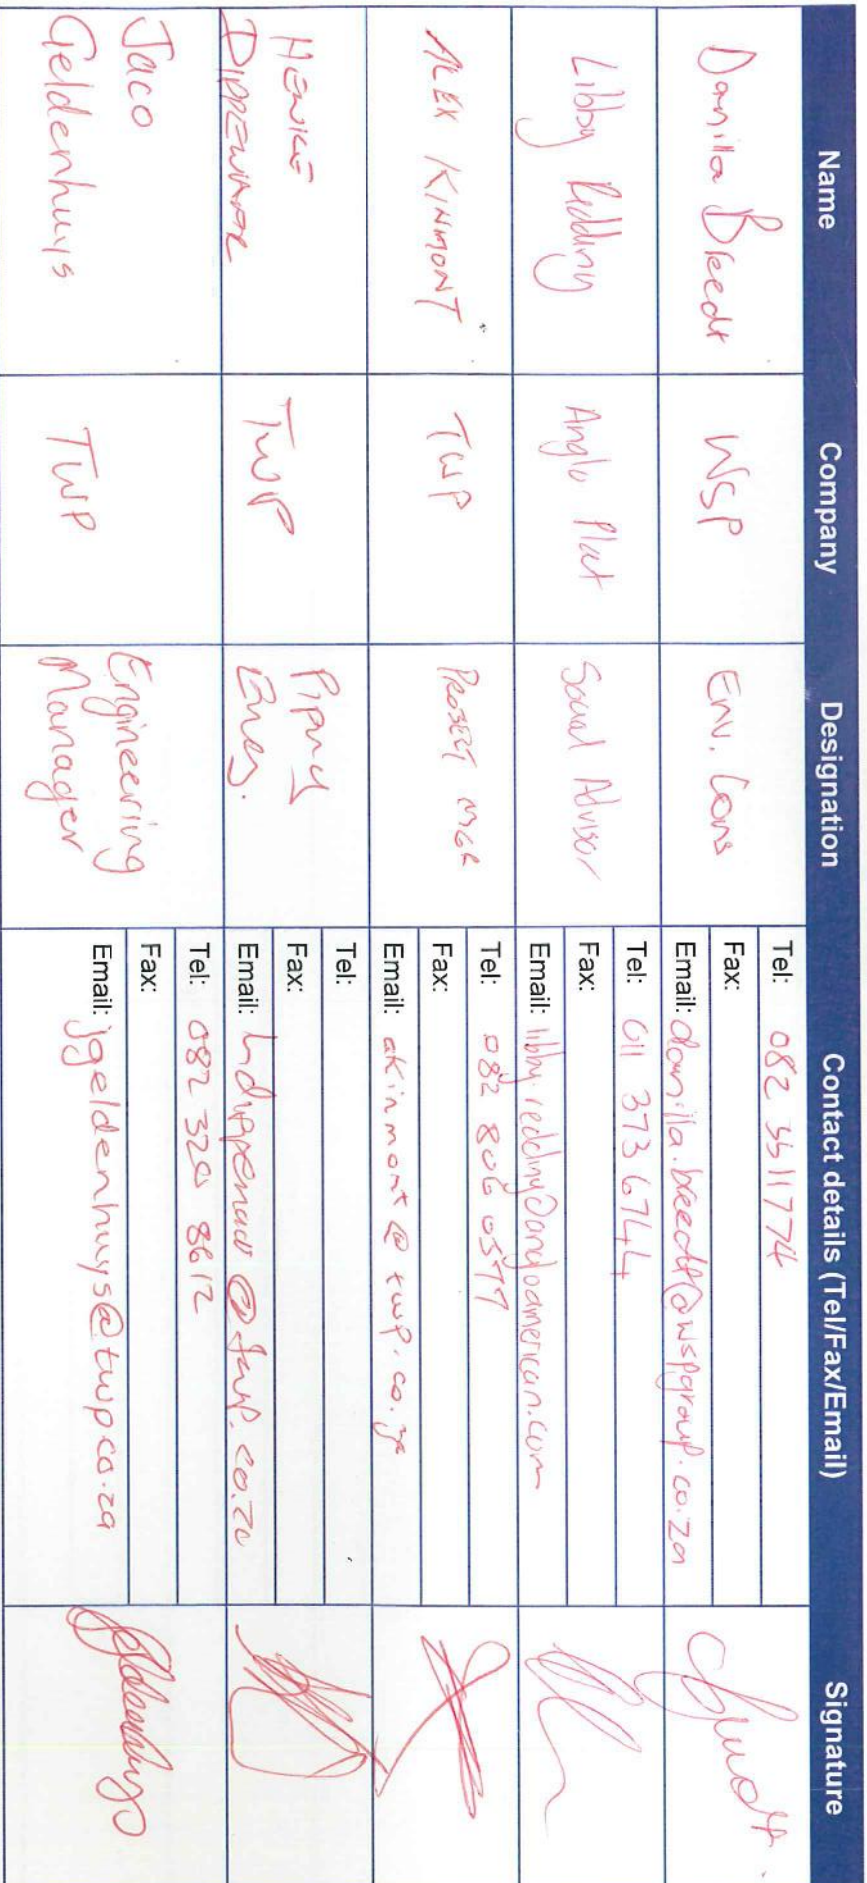 Name Company Designation Contact details (Tel/Fax/Email) Signature
Danilla Breedt WSP Env. Cons
Tel: 082 3311774
Fax:
Email: danilla.breedt@wspgroup.co.za
Libby Redding Anglo Plat Social Advisor
Tel: 011 373 6744
Fax:
Email: libby.redding@angloamerican.com
ALEX KINMONT TWP PROJECT MGR
Tel: 082 806 0577
Fax:
Email: akinmont@twp.co.za
HENKIE TWP Piping
Engs.
Tel:
Fax:
Email: @twp.co.za
Jaco TWP Engineering
Geldenhuys Manager
Tel: 082 320 8612
Fax:
Email: jgeldenhuys@twp.co.za